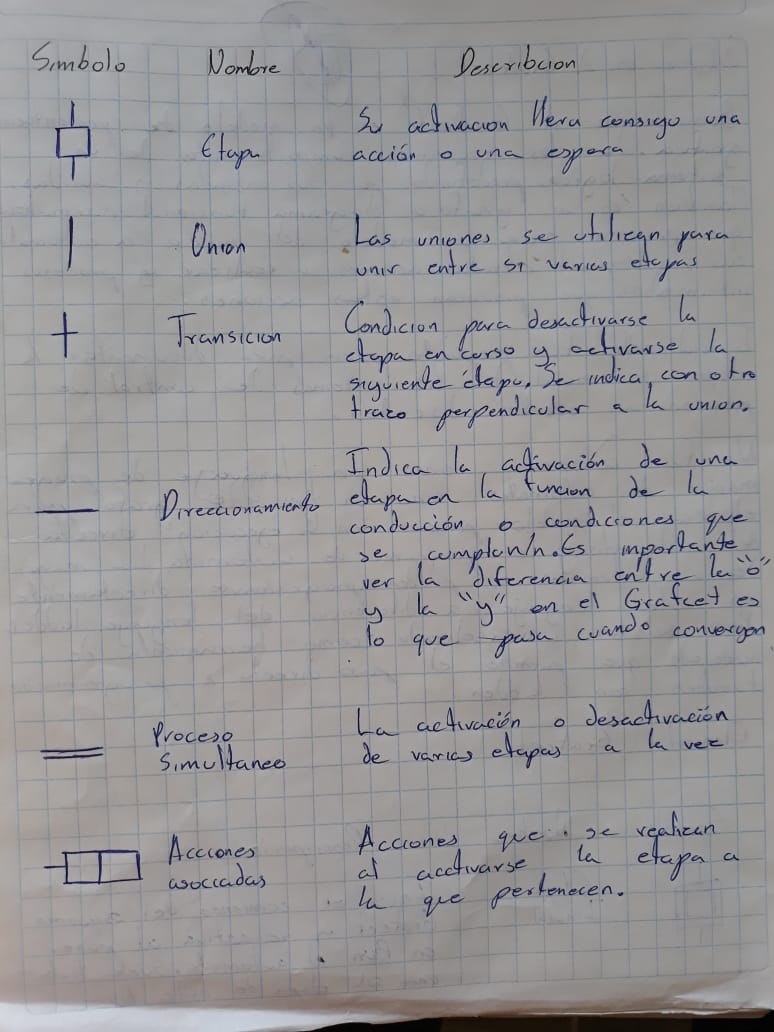 Simbolo Nombre Describcion
Etapa
Su activacion lleva consigo una
acción o una espera
Union
Las uniones se utilizan para
unir entre si varias etapas
Transicion
Condicion para desactivarse la
etapa en curso y activarse la
siguiente étapa. Se indica con otro
trazo perpendicular a la union.
Direccionamiento
Indica la activación de una
etapa en la funcion de la
conducción o condiciones que
se cumplen/n. Es importante
ver la diferencia entre la "o"
y la "y" en el Grafcet es
lo que pasa cuando convergen
Proceso
Simultaneo
La activación o desactivación
de varias etapas a la vez
Acciones
asocciadas
Acciones que se realizan
al acctivarse la etapa a
la que pertenecen.